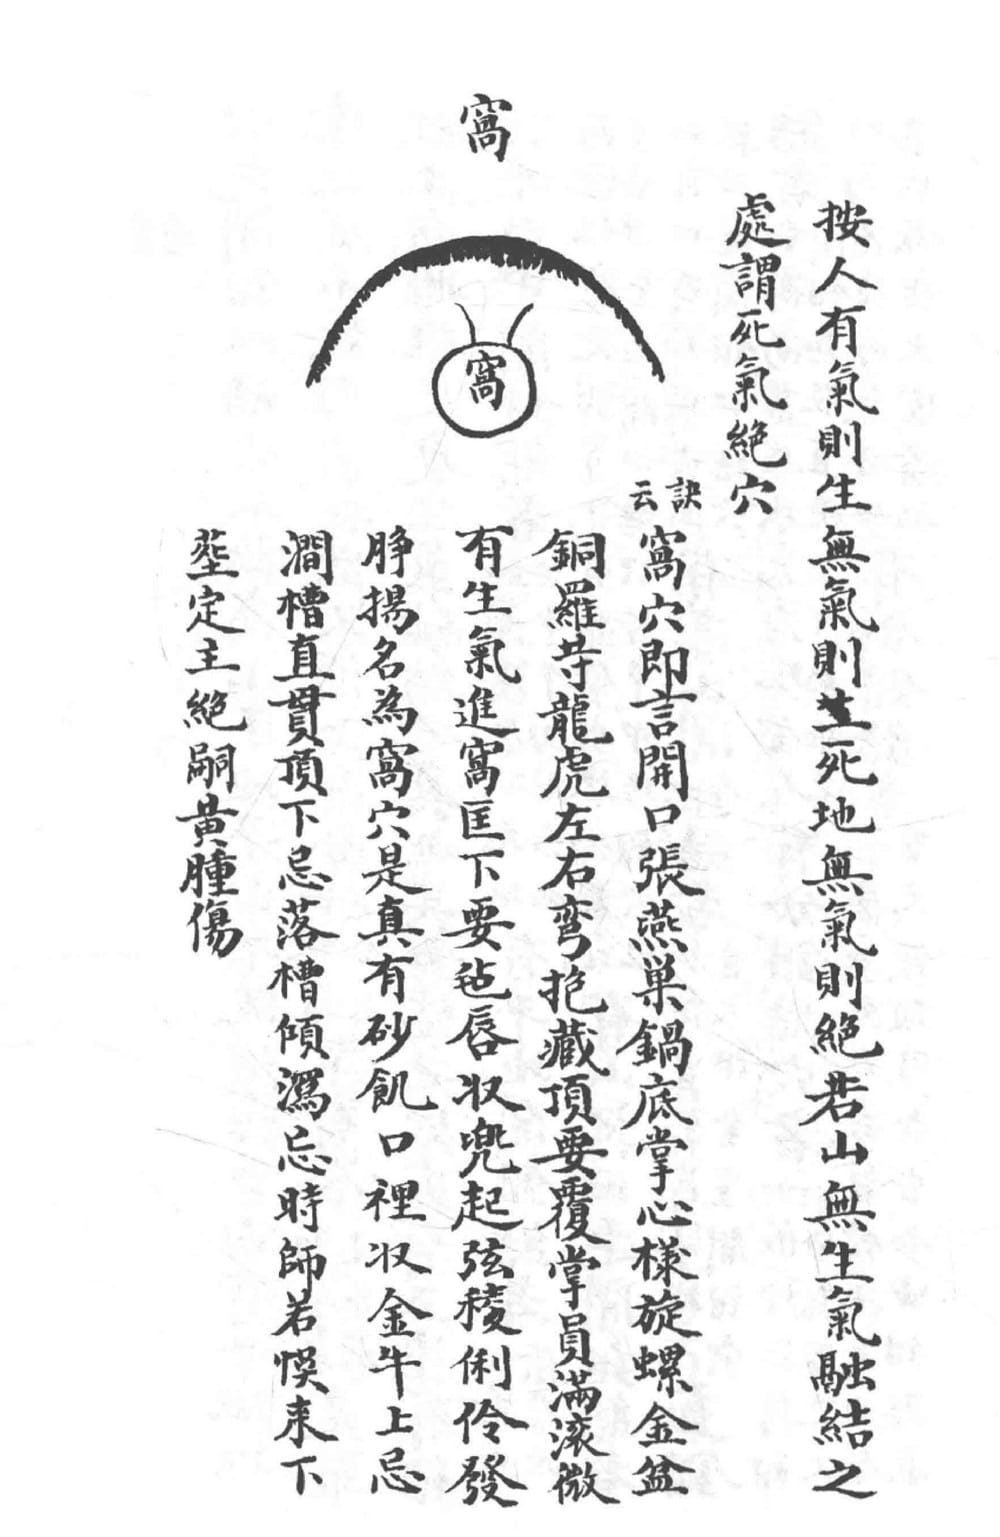 按人有氣則生無氣則死地無氣則絕若山無生氣融結之
處謂死氣絕穴
窩
窩
訣云
窩穴即言開口張燕巢鍋底掌心樣旋螺金盆
銅羅芽龍虎左右弯抱藏頂要覆掌員滿滚微
有生氣進窩匡下要毡唇收兠起弦稜俐伶發
脖揚名為窩穴是真有砂飢口裡收金牛上忌
澗槽直貫頂下忌落槽傾瀉忘時師若悞来下
塟定主絕嗣黄腫傷